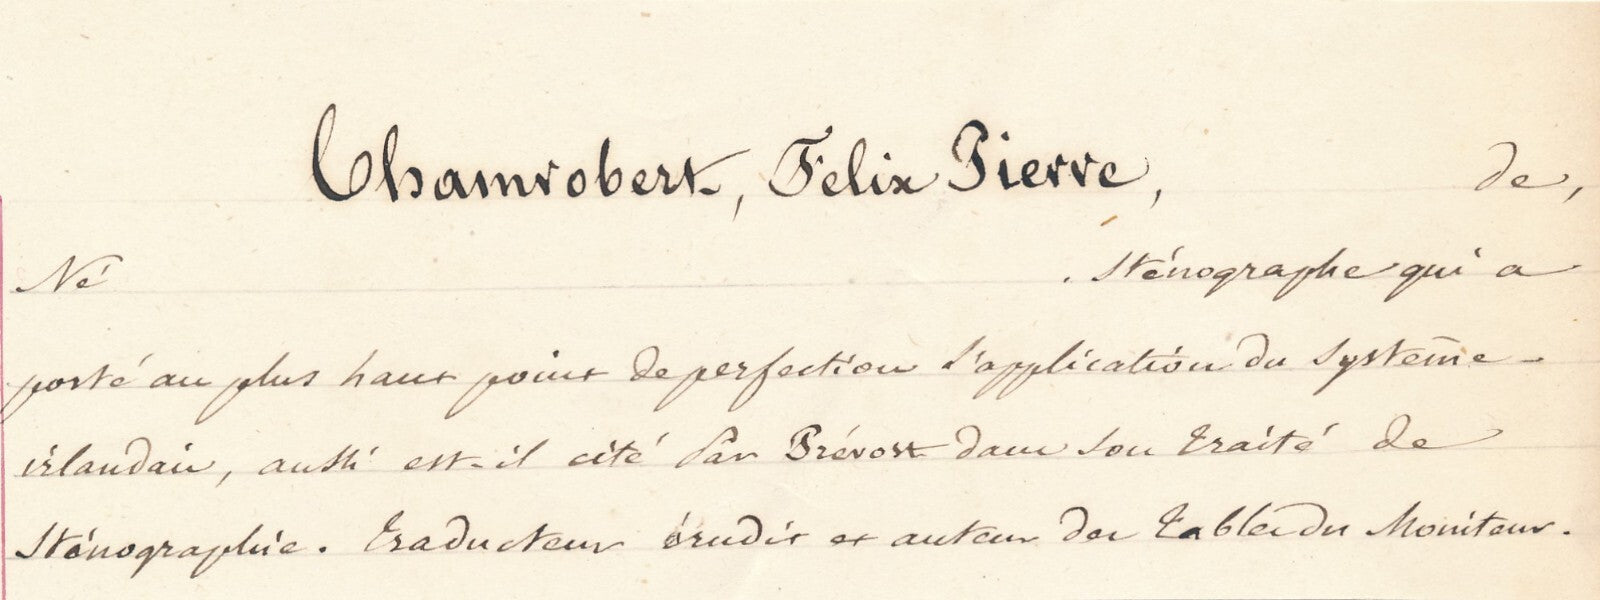 Chamrobert, Felix Pierre, de,
Né . Sténographe qui a
porté au plus haut point de perfection l'application du système
irlandais, aussi est-il cité par Prévost dans son traité de
Sténographie. Traducteur érudit et auteur des tables du Moniteur.